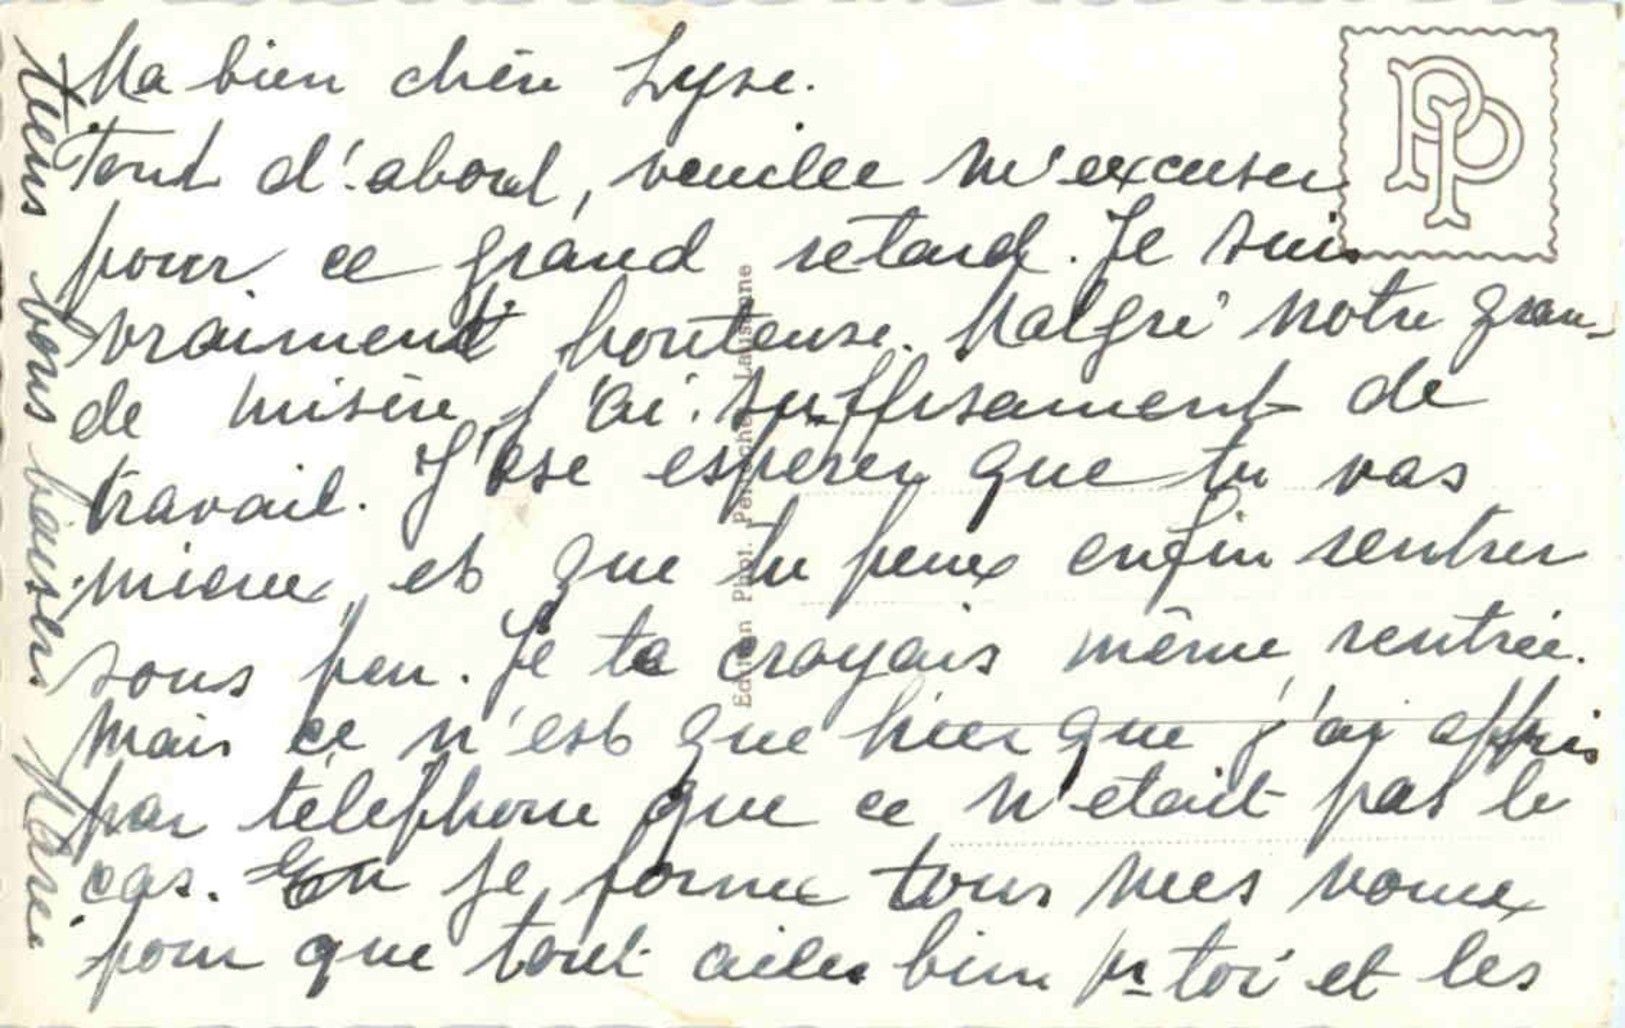 Ma bien chère Lyse.
Tout d'abord, veuilee m'excuser
pour ce grand retard. Je suis
vraiment honteuse. Malgré notre gran-
de misère, j'ai suffisament de
travail. J'ose espérer que tu vas
mieux, et que tu peux enfin rentrer
sous peu. Je te croyais même rentrée.
Mais ce n'est que hier que j'ai appris
par téléphone que ce n'était pas le
cas. En je forme tous mes voeux
pour que tout aille bien pr toi et les
tiens bons baisers Marie.
PP
Edition Phot. Perrochet Lausanne